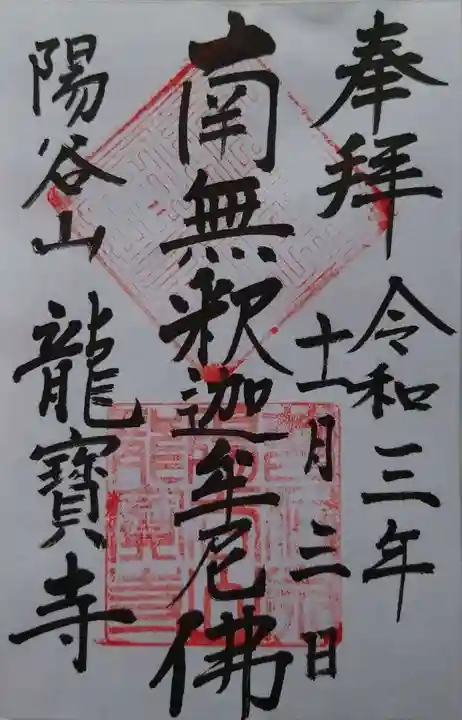 奉拝
令和三年
十一月三日
南無釈迦牟尼佛
陽谷山
龍寳寺